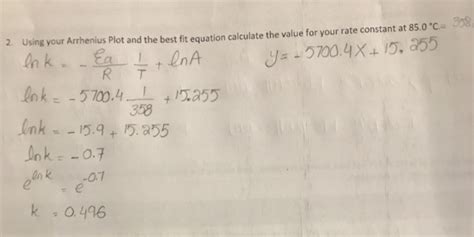 2. Using your Arrhenius Plot and the best fit equation calculate the value for your rate constant at 85.0 °C. = 358
ln k = - Ea/R 1/T + lnA y = - 5700.4X + 15.255
ln k = - 5700.4 1/358 + 15.255
ln k = - 15.9 + 15.255
ln k = - 0.7
e^ln k = e^-0.7
k = 0.496